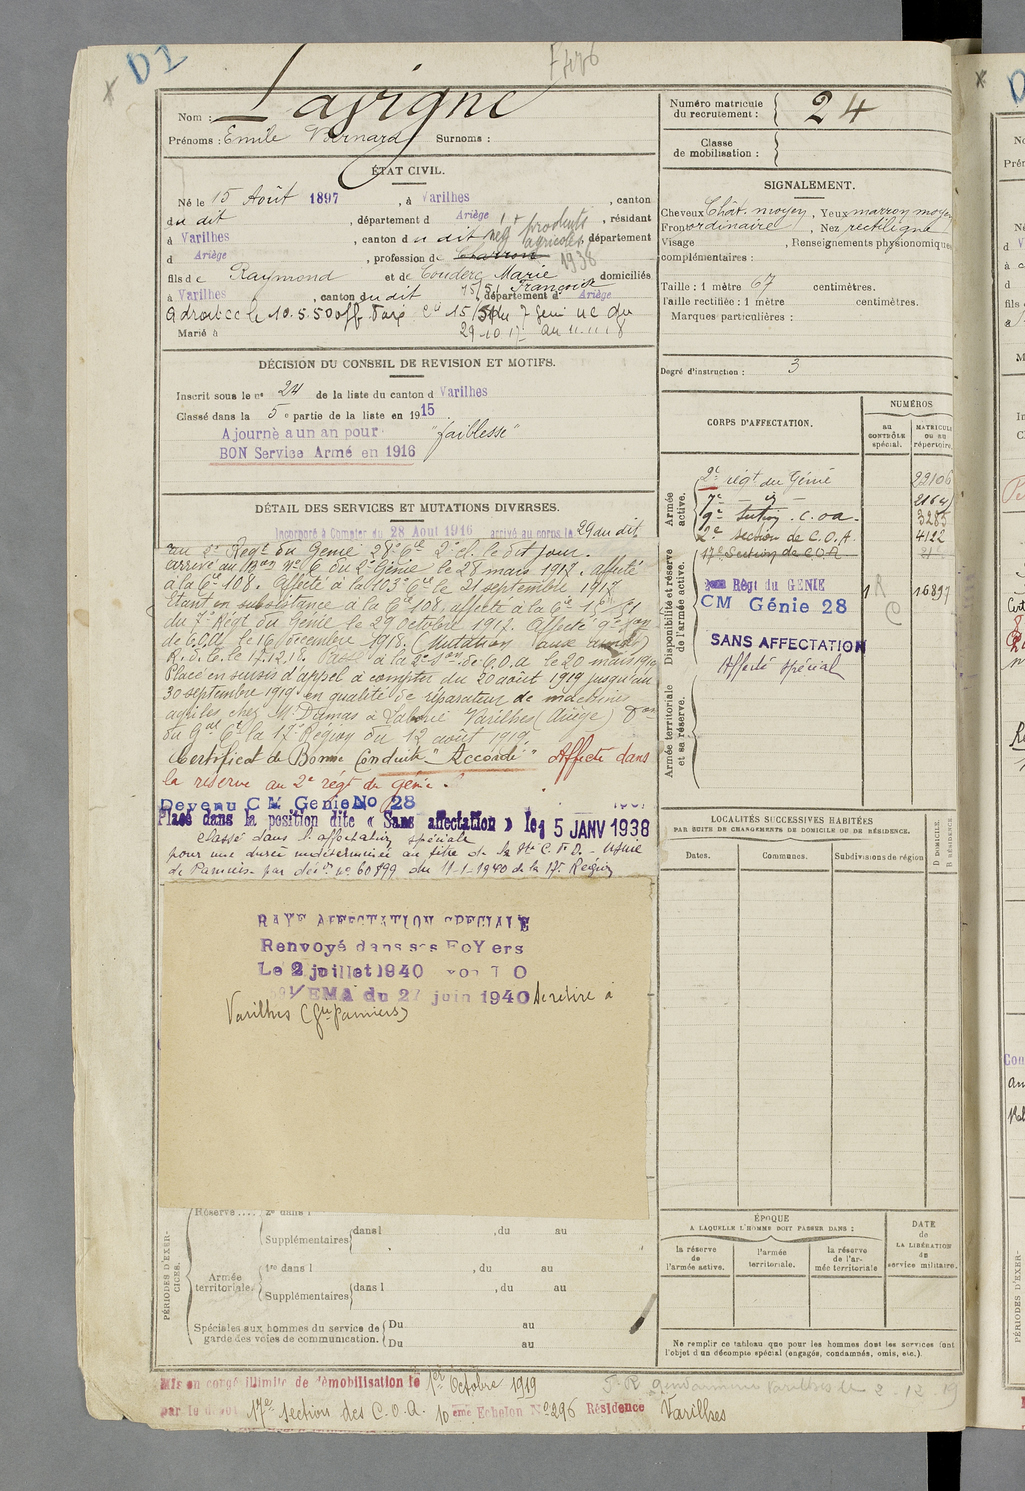 D1
Nom : Lavigne
Prénoms : Emile Bernard Surnoms :
ÉTAT CIVIL.
Né le 15 Août 1897, à Varilhes, canton
du dit, département d Ariège, résidant
à Varilhes, canton du dit, département
d Ariège, profession de Charron
nég t produits agricoles 1938
fils de Raymond et de Couderc Marie Françoise domiciliés
à Varilhes, canton du dit, département d Ariège
a droit cc le 10.5.50
du 7 Génie uc du
Marié à
29.10.17 au 11.11.18
DÉCISION DU CONSEIL DE REVISION ET MOTIFS.
Inscrit sous le n° 24 de la liste du canton d Varilhes
Classé dans la 5e partie de la liste en 1915
Ajourné a un an pour "faiblesse"
BON Service Armé en 1916
DÉTAIL DES SERVICES ET MUTATIONS DIVERSES.
Incorporé à Compter du 28 Aout 1916 arrivé au corps le 29 au dit
au 2e Régt du Génie 28e Cie 2e cl. le dit jour.
arrivé au Bon n° 6 du 2e Génie le 28 mars 1917. affecté
à la Cie 108. Affecté à la 103e Cie le 21 septembre 1917
Etant en subsistance à la Cie 108, affecté à la Cie
du 7e Régt du Génie le 29 octobre 1917. Affecté 9e Son
de C.O.A. le 16 décembre 1918. (Mutation aux armées)
R.d.C. le 17.12.18. Passé à la 2e Son de C.O.A le 20 mars 1919
Placé en sursis d'appel à compter du 20 août 1919 jusqu'au
30 septembre 1919 en qualité de réparateur de machines
agriles chez Mr Dumas à Varilhes (Ariège) Don
du Gal Ct la 17e Région du 12 août 1919
Certificat de Bonne Conduite "Accordé" Affecté dans
la réserve au 2e régt du génie.
Devenu C M Genie No 28
Placé dans la position dite « Sans affectation » le 15 JANV 1938
Classé dans l'affectation spéciale
pour une durée indéterminée au titre de la Sté C.F.D. - Usine
de Pamiers par déc on n° 60899 du 11-1-1940 de la 17e Région
RAYE AFFECTATION SPECIALE
Renvoyé dans ses FoYers
Le 2 juillet 1940
/EMA du 27 juin 1940 Se retire à
Varilhes (Pamiers)
PÉRIODES D'EXERCICES.
Réserve .... 2e dans l
Supplémentaires dans l , du au
Armée territoriale.
1re dans l , du au
Supplémentaires dans l , du au
Spéciales aux hommes du service de garde des voies de communication.
Du au
Du au
Mis en congé illimité de démobilisation le 1er Octobre 1919
par le dépot 17e section des C.O.A. 10 eme Echelon No 296 Résidence Varilhes
Gendarmerie Varilhes le 2.12.19
Numéro matricule du recrutement : 24
Classe de mobilisation :
SIGNALEMENT.
Cheveux Chât. moyen, Yeux marron moyen
Front ordinaire, Nez rectiligne
Visage , Renseignements physionomiques
complémentaires :
Taille : 1 mètre 67 centimètres.
Taille rectifiée : 1 mètre centimètres.
Marques particulières :
Degré d'instruction : 3
CORPS D'AFFECTATION.
NUMÉROS
au CONTRÔLE spécial.
MATRICULE ou au répertoire.
Armée active.
2e régt du Génie 22106
7e - id - 2164
9e section C.O.A. 3285
2e section de C.O.A. 4122
17e Section de C.O.A
Disponibilité et réserve de l'armée active.
Régt du GENIE 16897
CM Génie 28
SANS AFFECTATION
Affecté spécial
Armée territoriale et sa réserve.
LOCALITÉS SUCCESSIVES HABITÉES
PAR SUITE DE CHANGEMENTS DE DOMICILE OU DE RÉSIDENCE.
Dates. Communes. Subdivisions de région
D DOMICILE. R RÉSIDENCE.
ÉPOQUE
A LAQUELLE L'HOMME DOIT PASSER DANS :
la réserve de l'armée active.
l'armée territoriale.
la réserve de l'armée territoriale
DATE de LA LIBÉRATION du service militaire.
Ne remplir ce tableau que pour les hommes dont les services font
l'objet d'un décompte spécial (engagés, condamnés, omis, etc.).
PÉRIODES D'EXER-